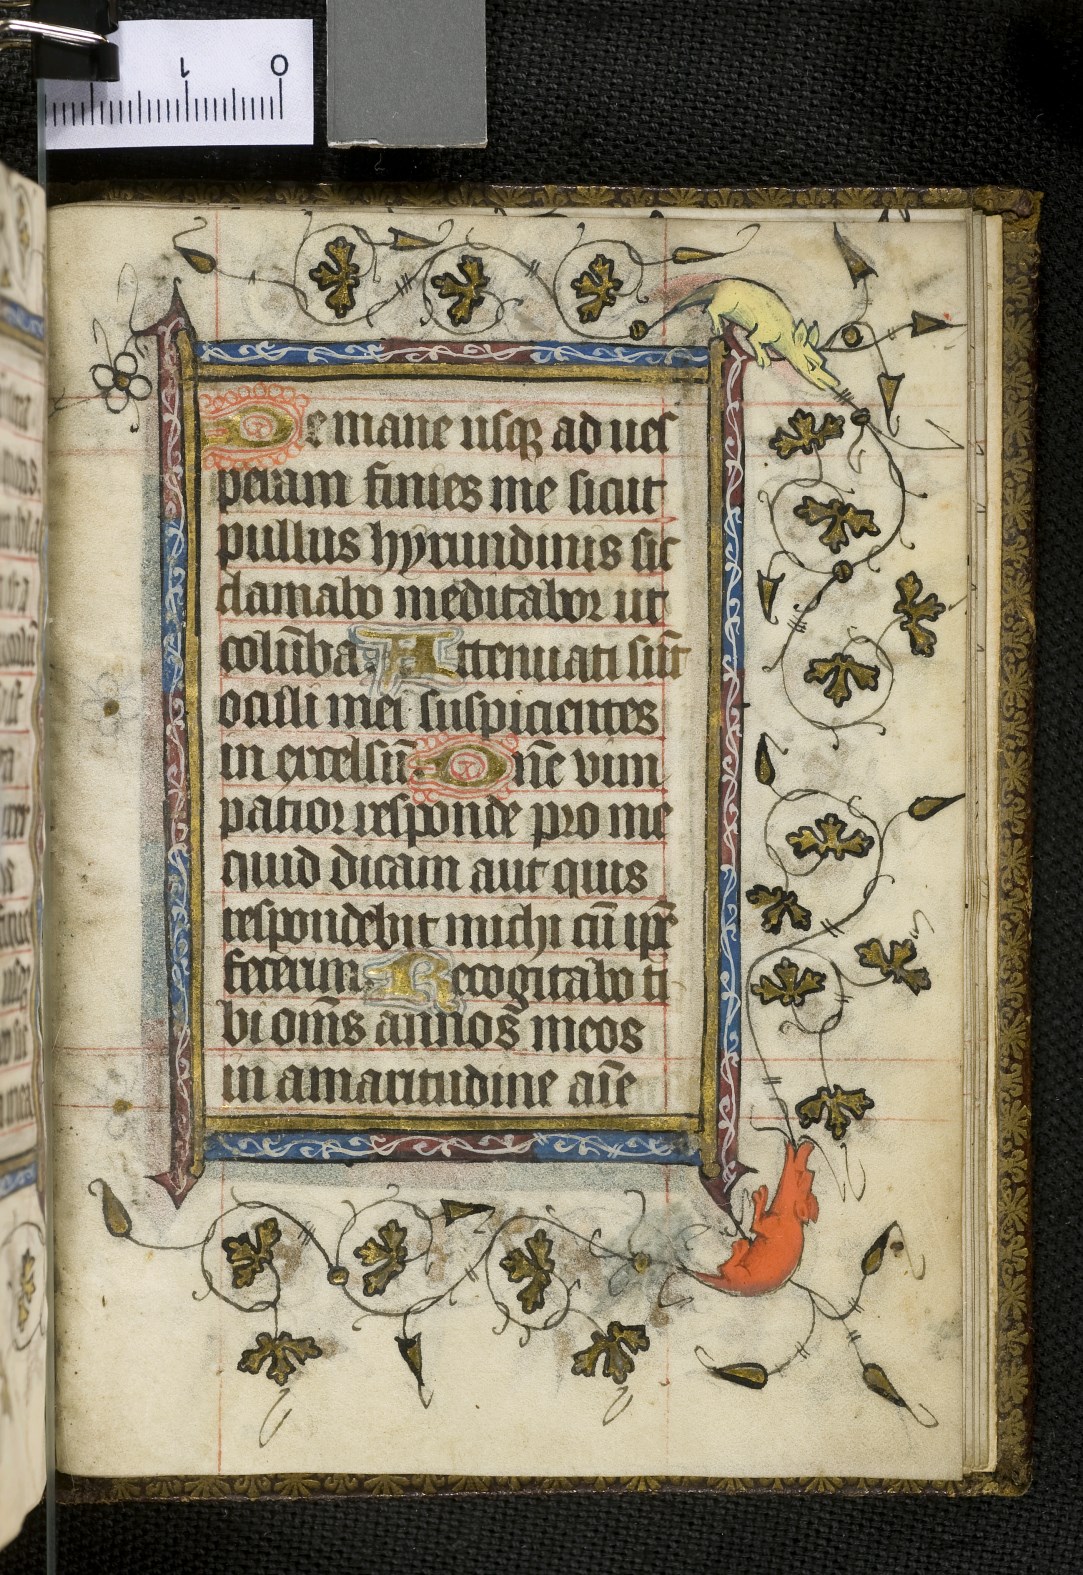 1 0
De mane usqꝫ ad ues
peram finies me sicut
pullus hyrundinis sic
clamabo meditabor ut
colūba. Attenuati sūt
oculi mei suspicientes
in excelsū. Dn̄e vim
patior responde pro me
quid dicam aut quis
respondebit michi cū ip̄e
fecerim. Recogitabo ti
bi om̄s annos meos
in amaritudine aīe